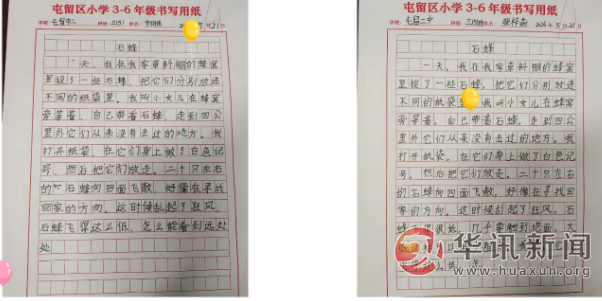 屯留区小学3-6年级书写用纸
石蜂
一天，我在我家草料棚的蜂窝
里捉了一些石蜂，把它们分别放进
不同的纸袋里。我叫小女儿在蜂窝
旁等着，自己带着石蜂，走到四公
里外它们从来没有去过的地方。我
打开纸袋，在它们身上做了白色记
号，然后把它们放走。二十只左右
的石蜂向四面飞散，好像在寻找
回家的方向。这时候刮起了狂风，
石蜂飞得这么低，怎么能看到远处
屯留区小学3-6年级书写用纸
石蜂
一天，我在我家草料棚的蜂窝
里捉了一些石蜂，把它们分别放进
不同的纸袋 我叫小女儿在蜂窝
旁等着，自己带着石蜂，走到四公
里外它们从来没有去过的地方。我
打开纸袋，在它们身上做了白色记
号，然后把它们放走。二十只左右
的石蜂向四面飞散，好像在寻找
回家的方向。这时候刮起了狂风，石
华讯新闻
www.huaxun.org